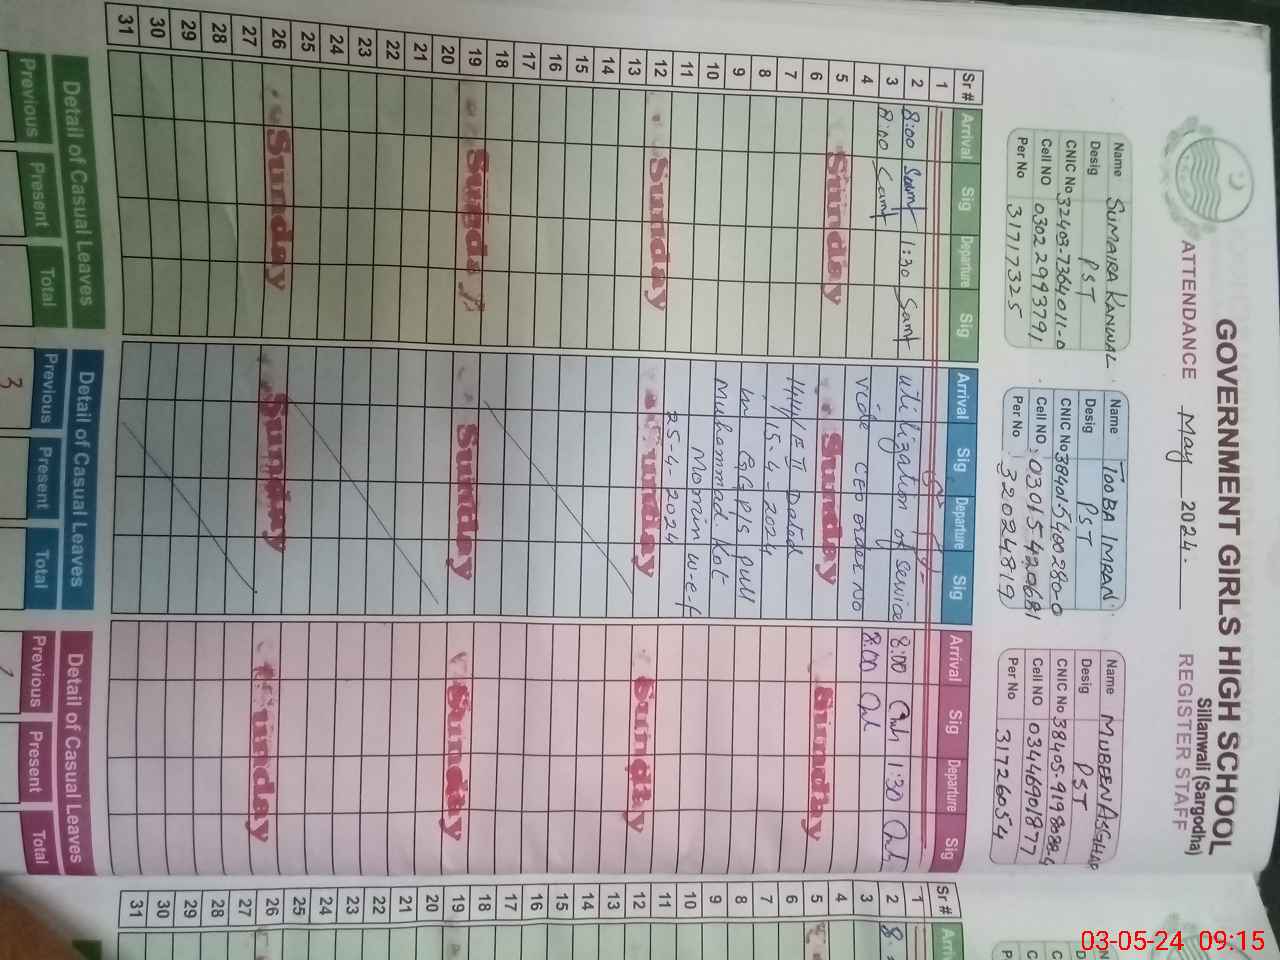 GOVERNMENT GIRLS HIGH SCHOOL
Sillanwali (Sargodha)
ATTENDANCE May 2024. REGISTER STAFF
Name SUMAIRA KANWAL
Desig PST
CNIC No 32403-7364011-0
Cell NO 03022993791
Per No 31717325
Name TOOBA IMRAN
Desig PST
CNIC No 38401-5400280-0
Cell NO 03015420681
Per No 32024819
Name MUBEEN ASGHAR
Desig PST
CNIC No
Cell NO 03446901877
Per No 31726054
Sr # Arrival Sig Departure Sig Arrival Sig Departure Sig Arrival Sig Departure Sig
1
2 8:00 1:30 utilization of service 8:00 1:30
3 8:00 vide CEO order No 8:00
4
5 Sunday Sunday Sunday
6 Dated
7 15-4-2024
8 in GGPS pull
9 Muhammad Kot
10 Momin w-e-f
11 25-4-2024
12 Sunday Sunday Sunday
13
14
15
16
17
18
19 Sunday Sunday Sunday
20
21
22
23
24
25
26 Sunday Sunday Sunday
27
28
29
30
31
Detail of Casual Leaves Detail of Casual Leaves Detail of Casual Leaves
Previous Present Total Previous Present Total Previous Present Total
3
Sr #
1
2 8
3
4
5
6
7
8
9
10
11
12
13
14
15
16
17
18
19
20
21
22
23
24
25
26
27
28
29
30
31
03-05-24 09:15